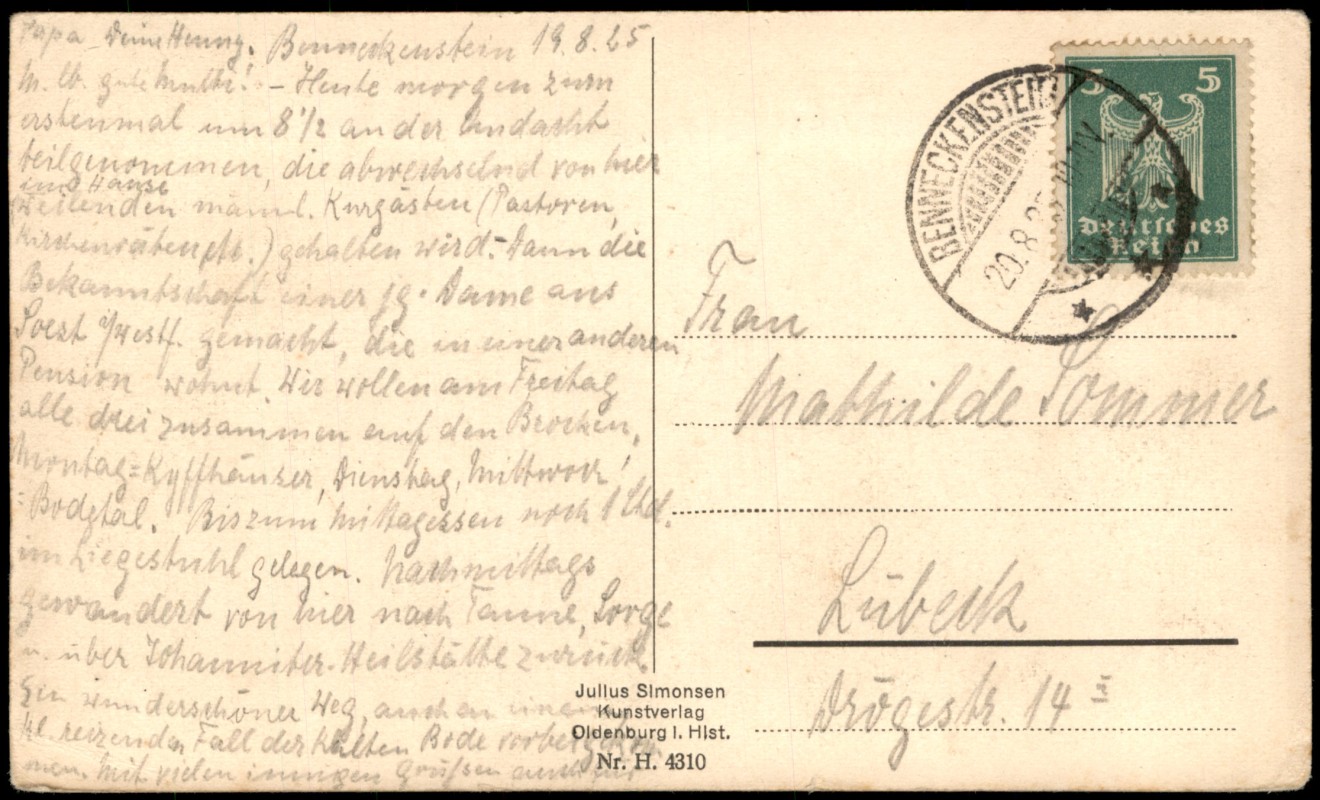 Papa Deine Henny.
Benneckenstein 19.8.25
M. lb. gute Mutti! – Heute morgen zum
erstenmal um 8 1/2 an der Andacht
teilgenommen, die abwechselnd von hier
im Hause
weilenden männl. Kurgästen (Pastoren,
Kirchenräten etc.) gehalten wird. Dann die
Bekanntschaft einer jg. Dame aus
Soest i/Westf. gemacht, die in einer anderen
Pension wohnt. Wir wollen am Freitag
alle drei zusammen auf den Brocken,
Montag = Kyffhäuser, Dienstag, Mittwoch
= Bodetal. Bis zum Mittagessen noch 1 Std.
im Liegestuhl gelegen. Nachmittags
gewandert von hier nach Tanne, Sorge
u. über Johanniter-Heilstätte zurück.
Ein wunderschöner Weg, auch an einem
kl. reizenden Fall der Kalten Bode vorbergekom
men. Mit vielen innigen Grüßen auch für
Julius Simonsen
Kunstverlag
Oldenburg i. Hlst.
Nr. H. 4310
BENNECKENSTEIN
20.8.
5 5
Deutsches
Reich
Frau
Mathilde Sommer
Lübeck
Drögestr. 14 II